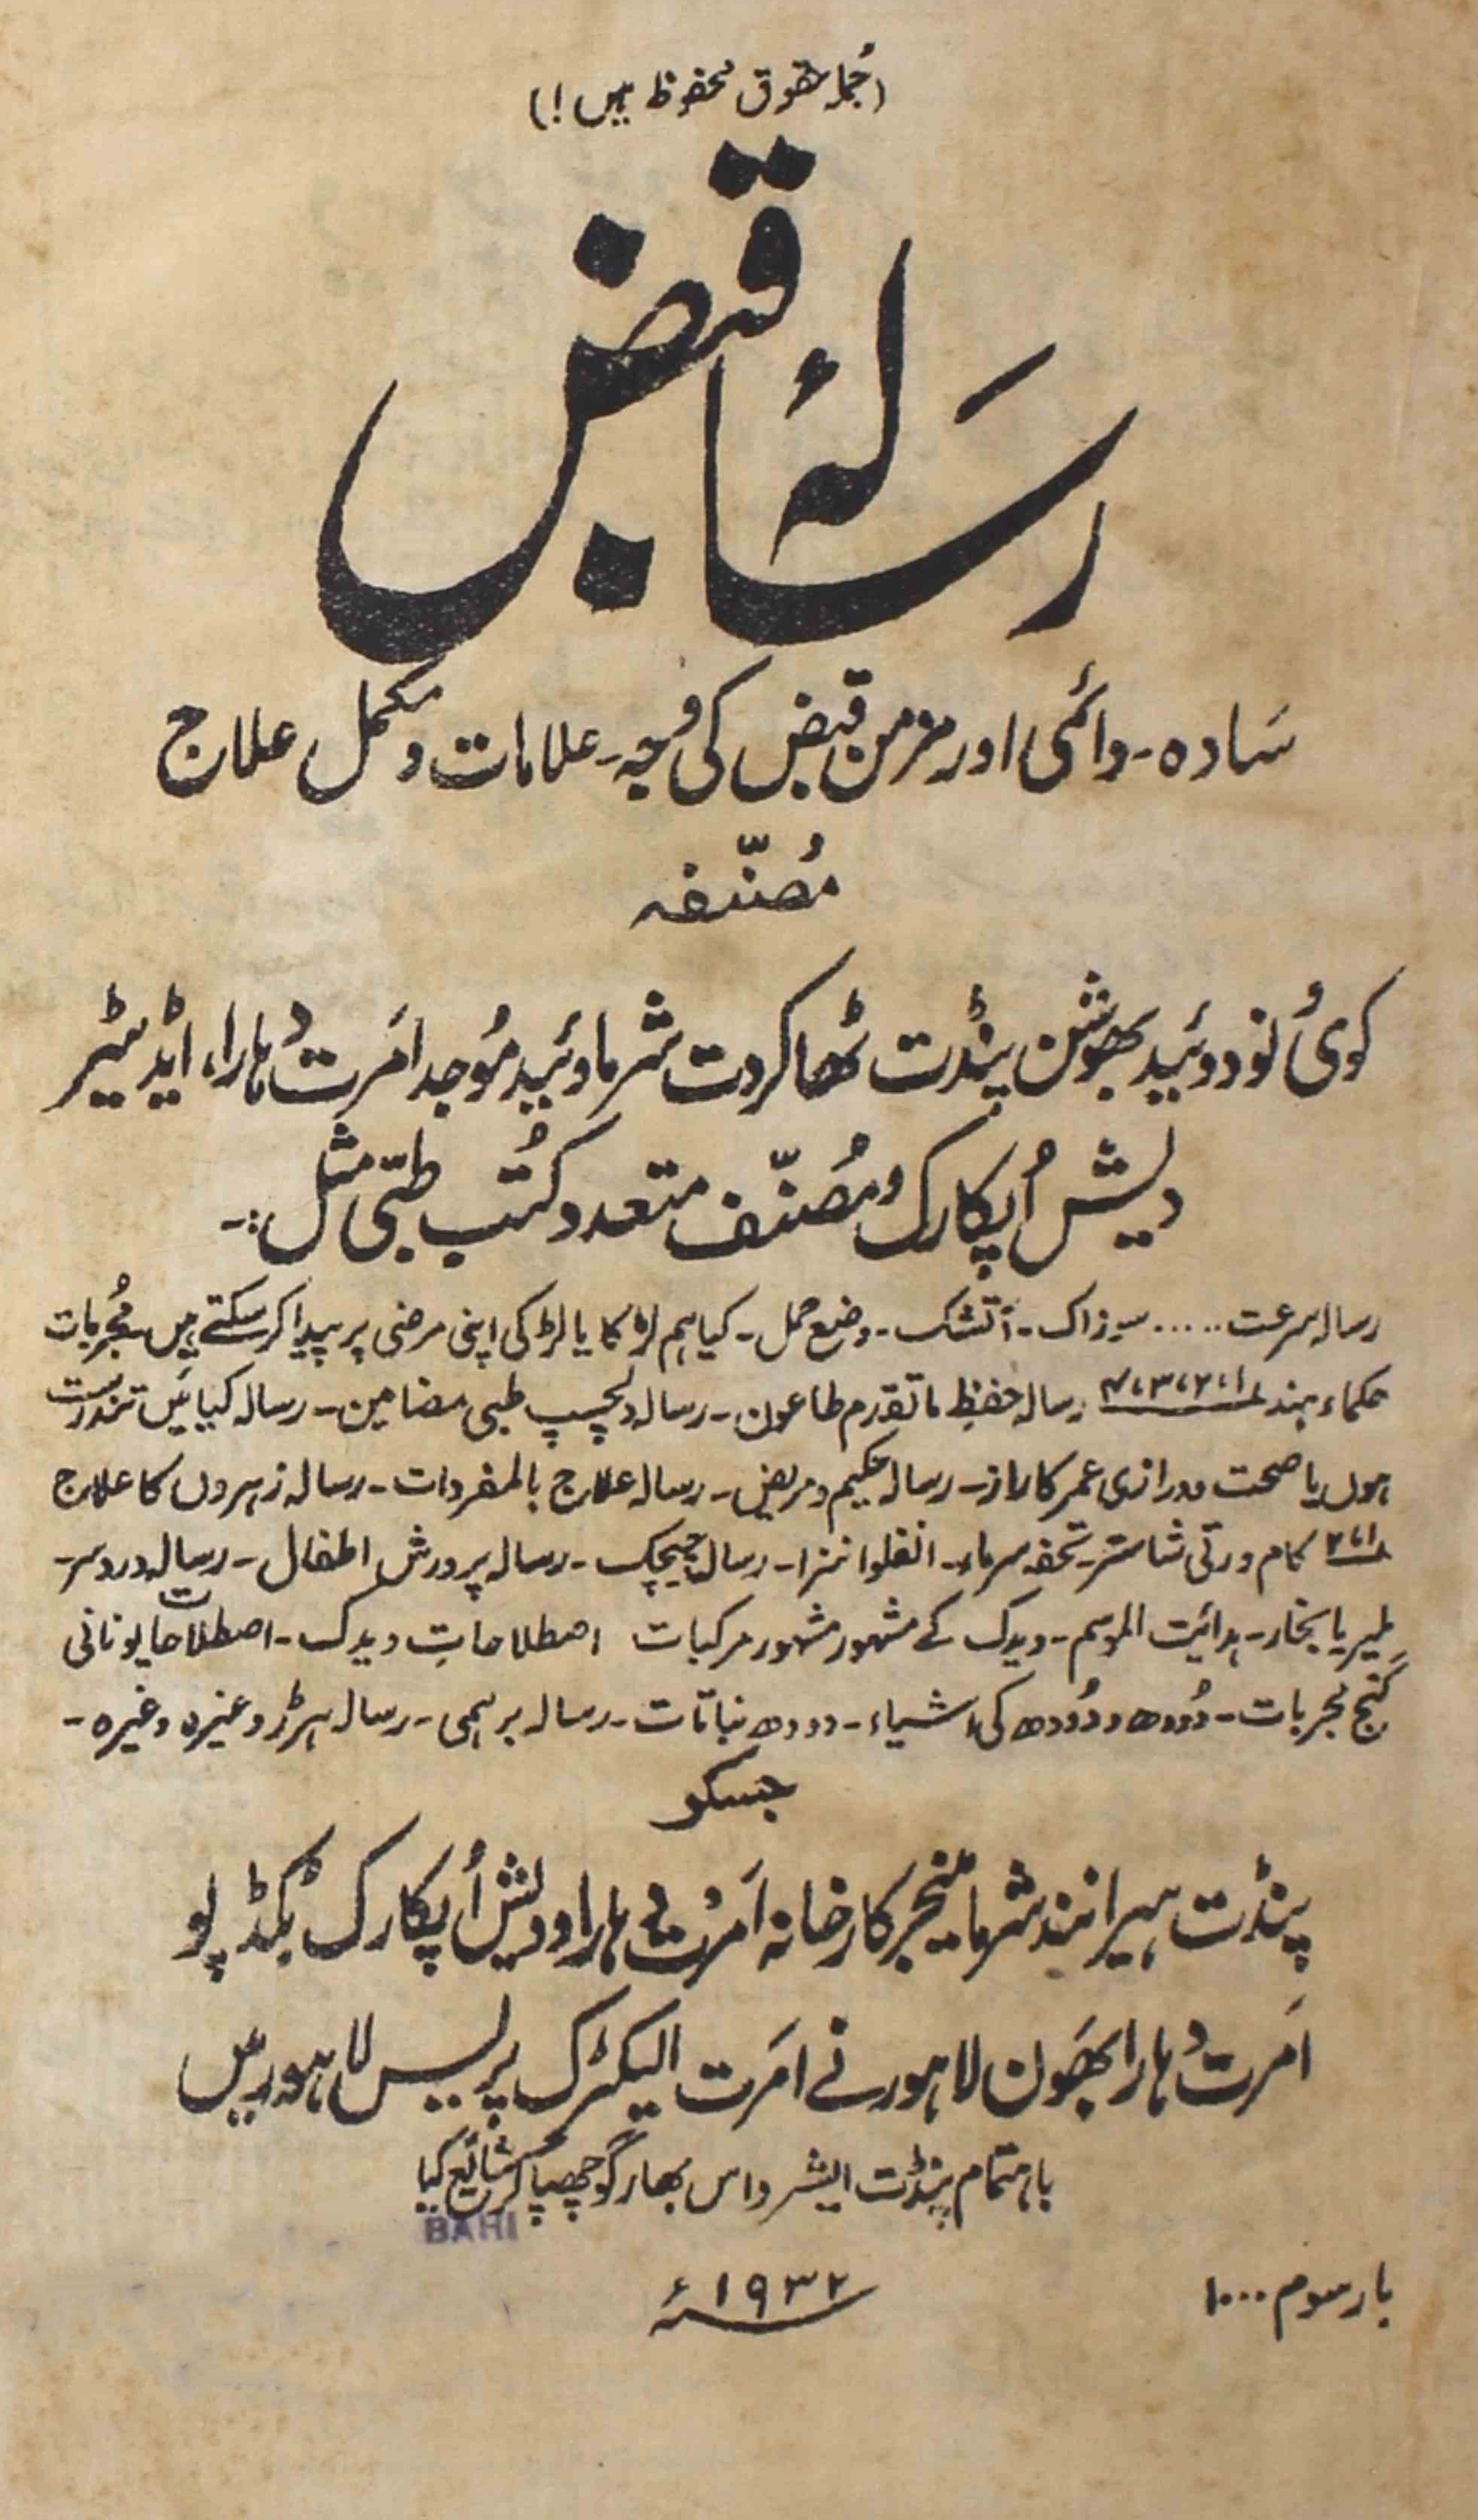 (جُملہ حقوق محفوظ ہیں!)
رسالۂ قبض
سَادہ۔ دائمی اور مزمن قبض کی وجہ۔ علامات و مکمل علاج
مُصنّفہ
کوی ونود وئید بھوشن پنڈت ٹھاکر دت شرما وئید مُوجد اَمرت دُہارا، ایڈیٹر
دیش اُپکارک و مُصنّف متعدد کُتب طبّی مثل:۔
رسالہ سرعت ..... سوزاک۔ آتشک۔ وضع حمل۔ کیا ہم لڑکا یا لڑکی اپنی مرضی پر پیدا کر سکتے ہیں۔ مُجربات
حکماء ہند ۱،۲،۳،۴ رسالہ حفظِ ماتقدم طاعون۔ رسالہ دلچسپ طبی مضامین۔ رسالہ کیا مَیں تندرست
ہوں یا صحت و درازی عمر کا راز۔ رسالہ حکیم و مریض۔ رسالہ علاج بالمفردات۔ رسالہ زہروں کا علاج
۱،۲ کام ورتی شاستر۔ تحفہ سرماء۔ انفلوانزا۔ رسالہ چیچک۔ رسالہ پرورش اطفال۔ رسالہ درد سر۔
ملیریا بخار۔ ہدائیت الموسم۔ ویدک کے مشہور مشہور مرکبات اصطلاحاتِ ویدک۔ اصطلاحات یونانی
گنج مجربات۔ دُودھ و دُودھ کی اشیاء۔ دودھ نباتات۔ رسالہ برہمی۔ رسالہ ہرڑ وغیرہ وغیرہ۔
جسکو
پنڈت ہیرانند شرما مینیجر کارخانہ اَمرت دُہارا و دیش اُپکارک بُکڈپو
اَمرت دُہارا بھَون لاہور نے اَمَرت الیکٹرک پریس لاہور میں
باہتمام پنڈت ایشر داس بھارگو چھپا کر شائع کیا
BAHI
بار سوم ۱۰۰۰
۱۹۳۲ء